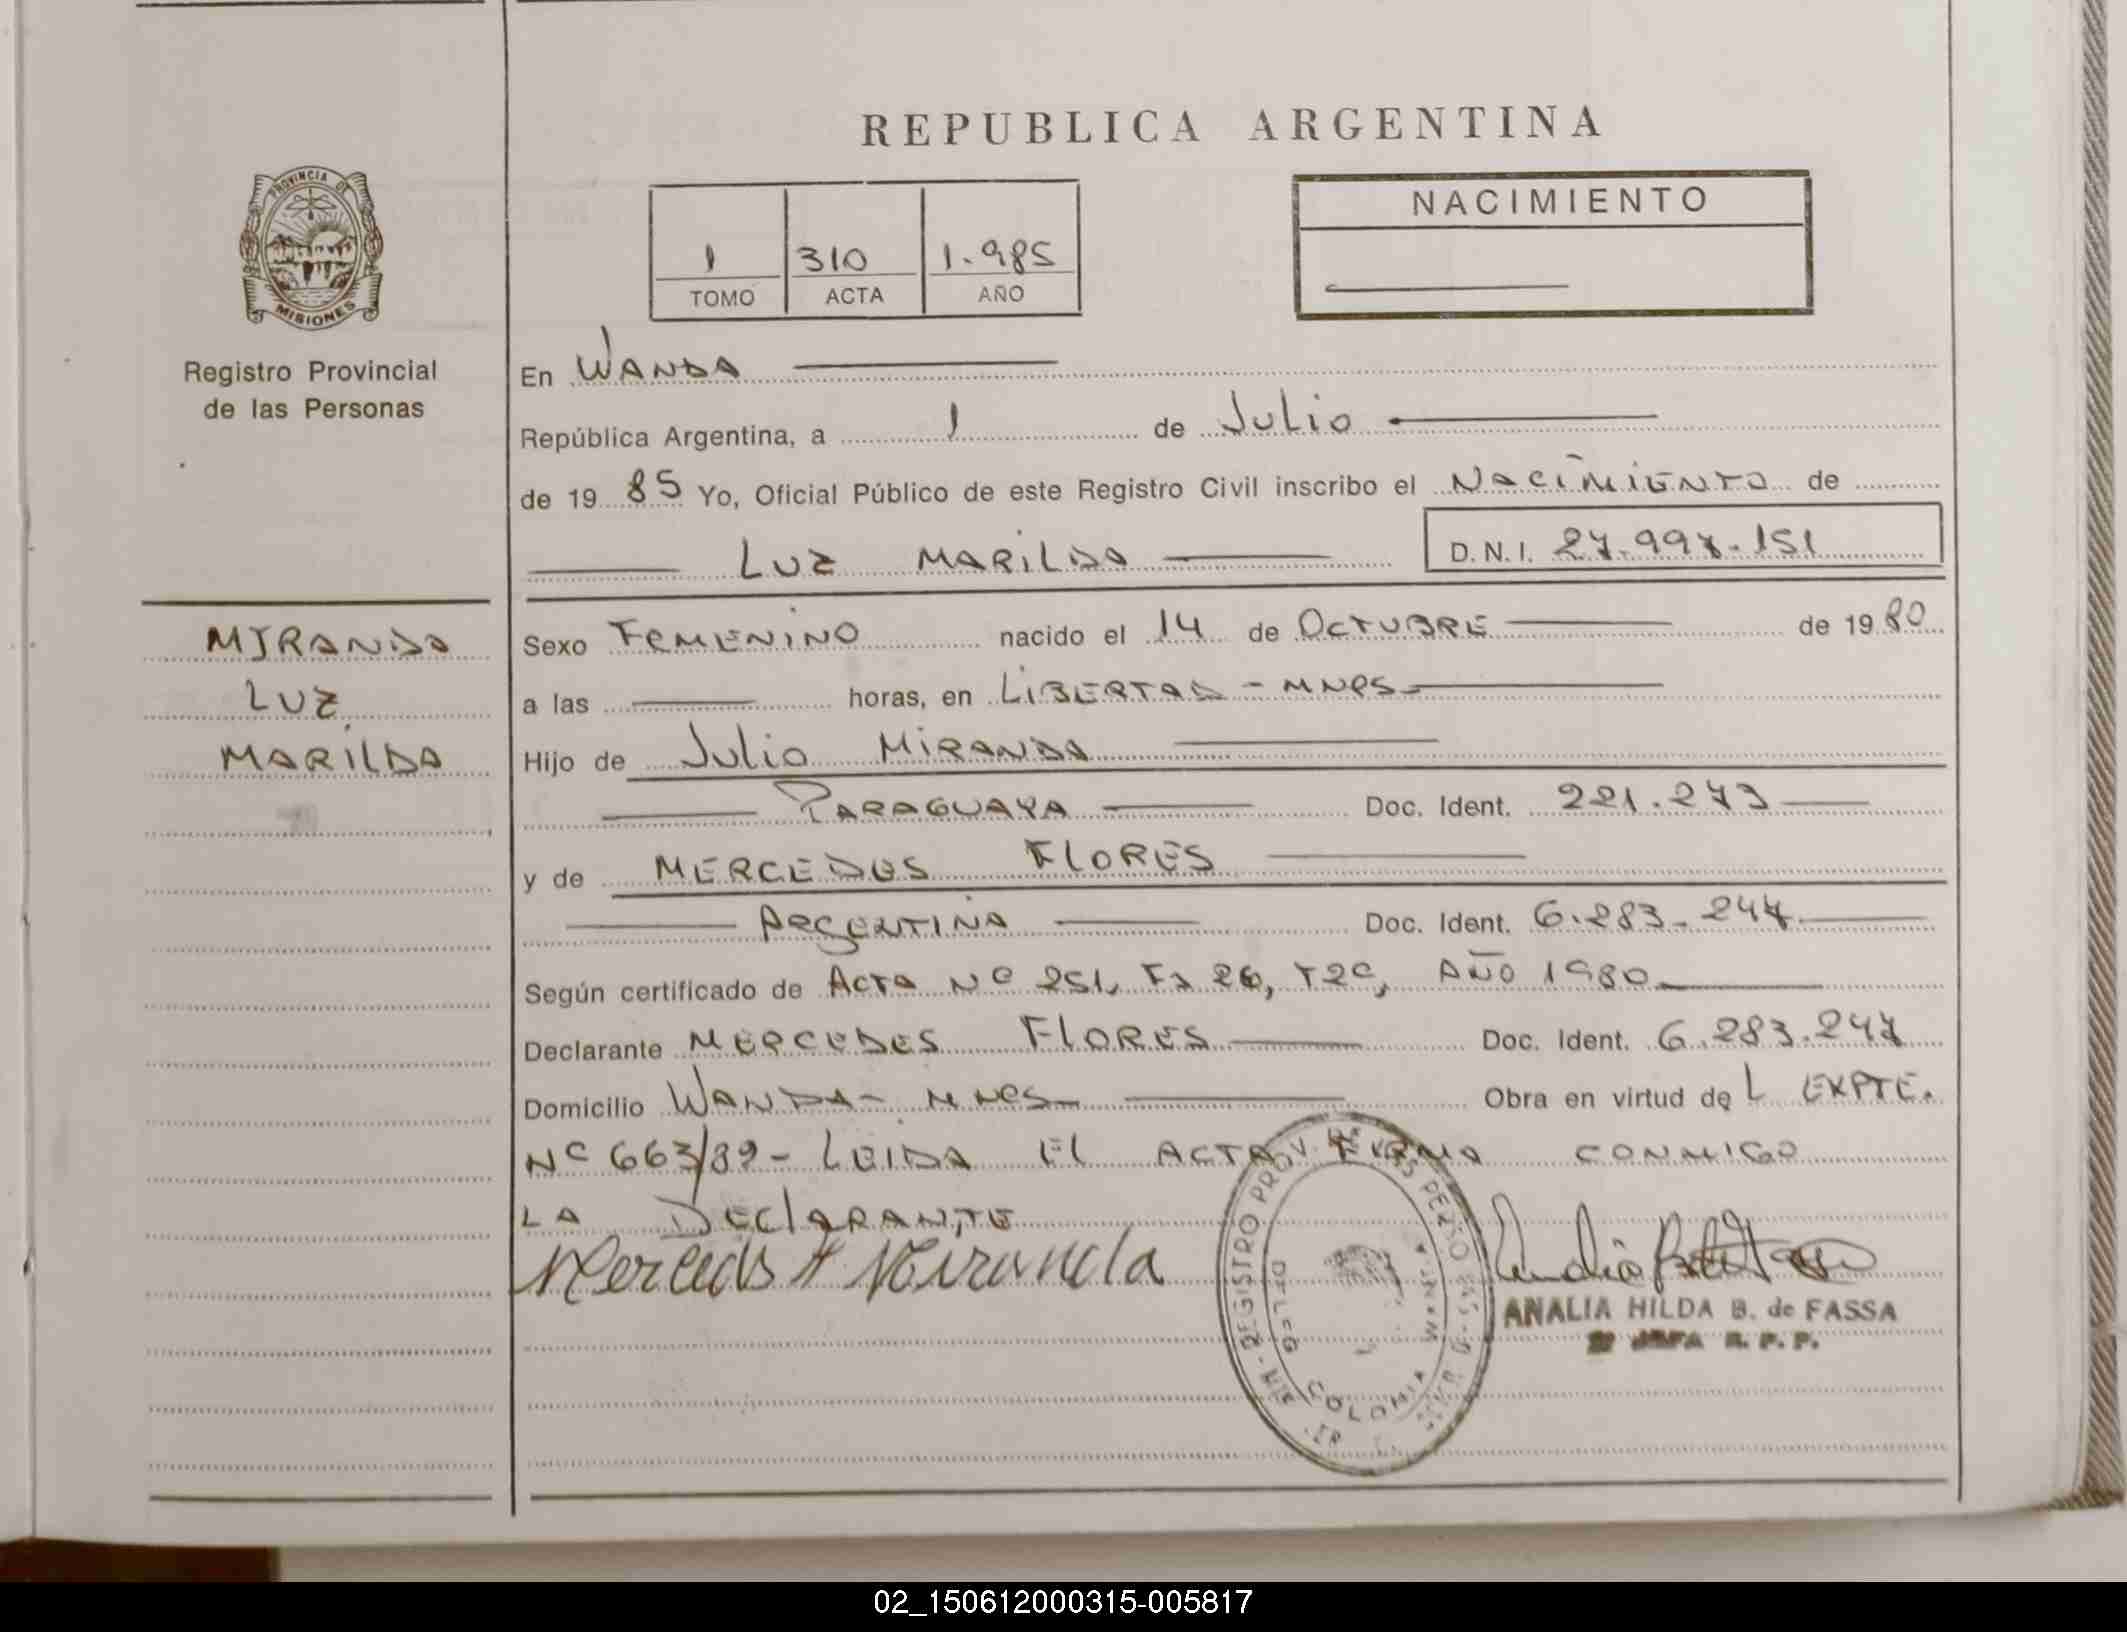 REPUBLICA ARGENTINA
PROVINCIA DE
MISIONES
Registro Provincial
de las Personas
1 310 1.985
TOMO ACTA AÑO
NACIMIENTO
En WANDA
República Argentina, a 1 de Julio
de 19 85 Yo, Oficial Público de este Registro Civil inscribo el NACIMIENTO de
LUZ MARILDA D.N.I. 27.997.151
MIRANDA
LUZ
MARILDA
Sexo FEMENINO nacido el 14 de OCTUBRE de 19 80
a las horas, en LIBERTAD - MNES
Hijo de Julio MIRANDA
PARAGUAYA Doc. Ident. 221.273
y de MERCEDES FLORES
ARGENTINA Doc. Ident. 6.283.247
Según certificado de Acta Nº 251, Fº 26, T2º, AÑO 1980
Declarante MERCEDES FLORES Doc. Ident. 6.283.247
Domicilio WANDA - MNES Obra en virtud de L EXPTE.
Nº 663/89 - LEIDA EL ACTA, FIRMA CONMIGO
LA DEClARANTE
Mercedes F Miranda
REGISTRO PROV. DE LAS PERSONAS
DELEG. COLONIA WANDA
ANALIA HILDA B. de FASSA
JEFA R. P. P.
02_150612000315-005817